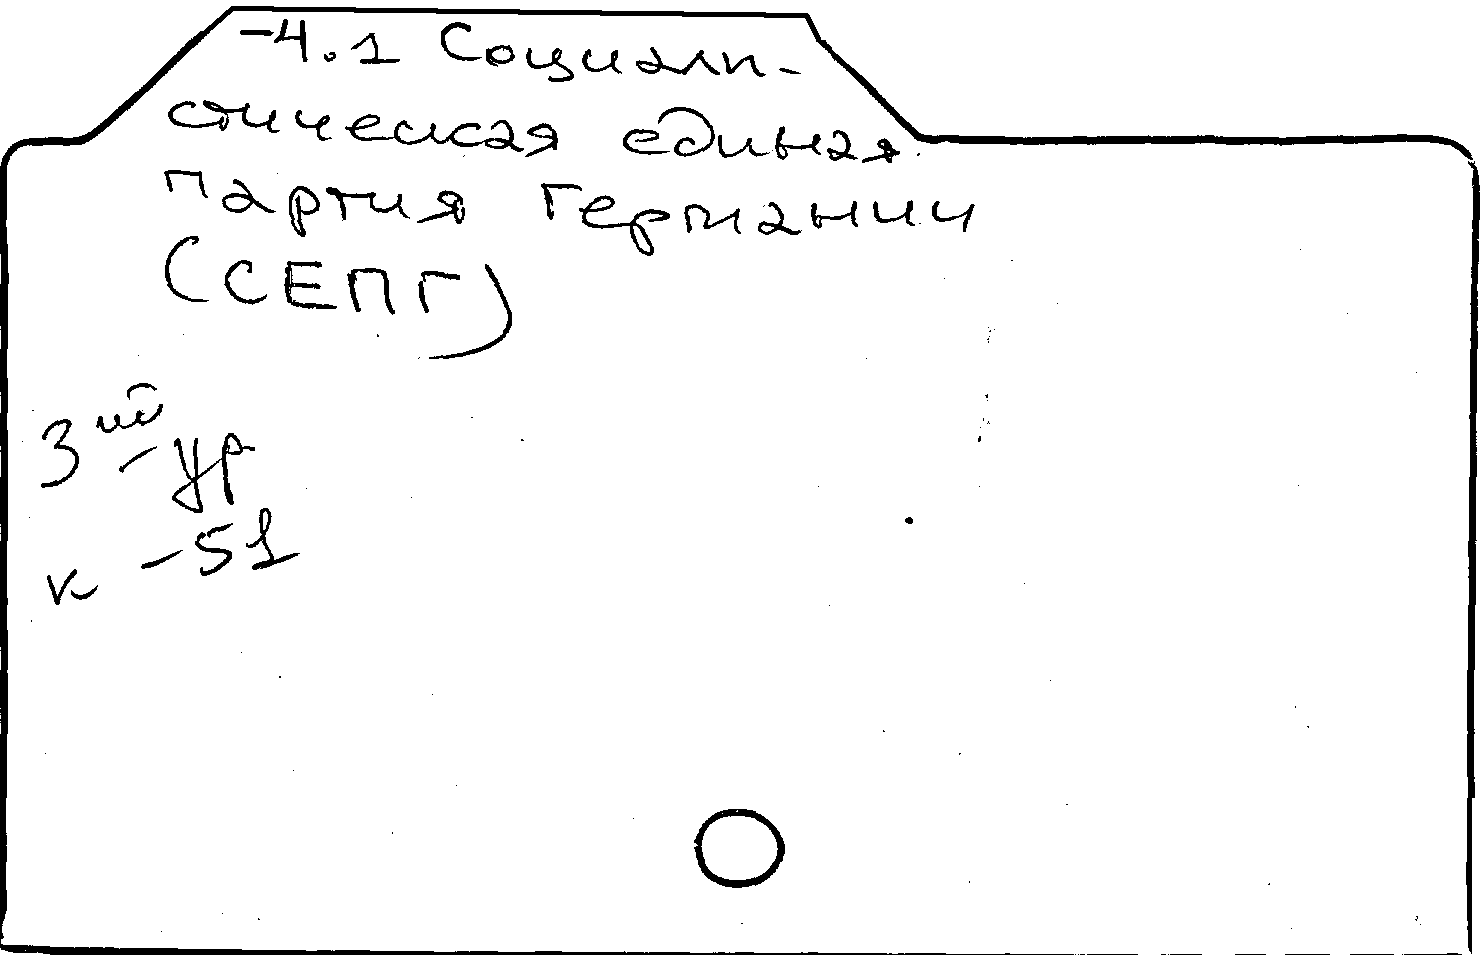 -4.1 Социали-
стическая единая
партия Германии
(СЕПГ)
3ий - ур
к -51